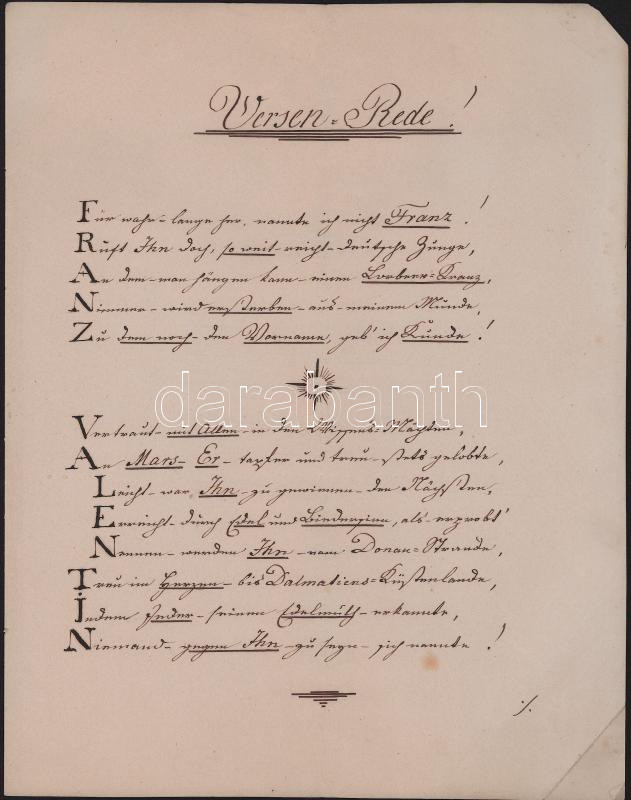 Versen-Rede!
Für wahr - lange her, nannte ich nicht Franz!
Ruft Ihn doch, so weit - reicht - deutsche Zunge,
An dem - man hängen kann - einen Lorbeer-Kranz,
Nimmer - wird ersterben - aus - meinem Munde,
Zu dem noch - den Vorname, geb' ich Kunde!
darabanth
Vertraut - mit Allem - in den Wissens-Mächten,
An Mars - Er - tapfer und treu - stets gelobte,
Leicht - war Ihn - zu gewinnen - den Nächsten,
Erreicht - durch Edel und Biedersinn, als - erprobt'
Nennen - werden Ihn - vom Donau-Strande,
Treu im Herzen - bis Dalmatiens-Küstenlande,
Jedem Jeder - seinen Edelmuth - erkannte,
Niemand - gegen Ihn - zu seyn - sich nannte!
./.